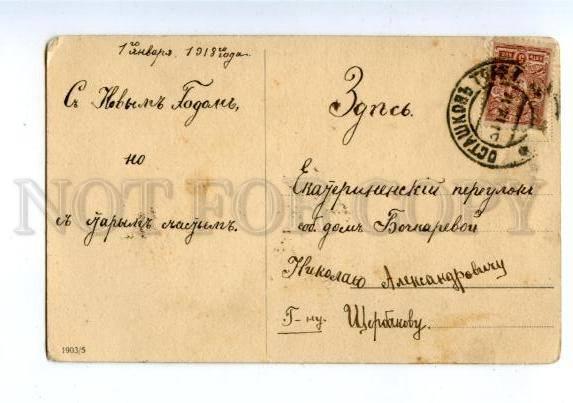 1го Января 1918 года.
Съ Новымъ Годомъ,
но
съ старымъ счастьемъ.
1903/5
ОСТАШКОВЪ ТВЕР.
Здѣсь.
Екатерининскій переулокъ
соб. домъ Бочкаревой
Николаю Александровичу
Г-ну. Щербакову.
NOT FOR COPY